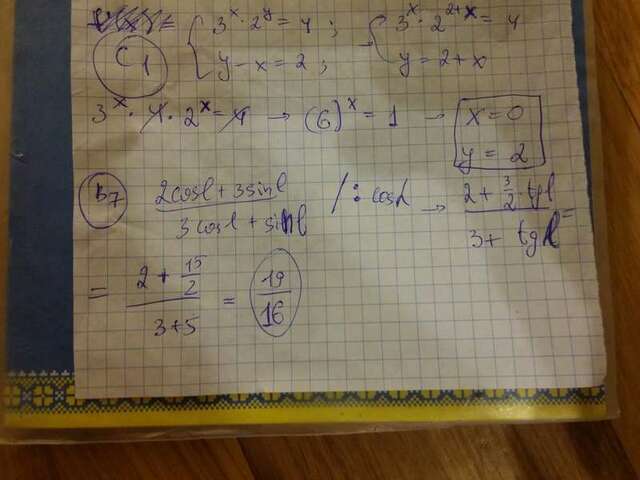 C1 { 3^x · 2^y = 4 ; → { 3^x · 2^{2+x} = 4
y - x = 2 ; y = 2 + x
3^x · 4 · 2^x = 4 → (6)^x = 1 → x = 0
y = 2
B7 (2cosl + 3sinl)/(3cosl + sinl) /: cosl → (2 + 3/2 · tgl)/(3 + tgl) =
= (2 + 15/2)/(3+5) = 19/16